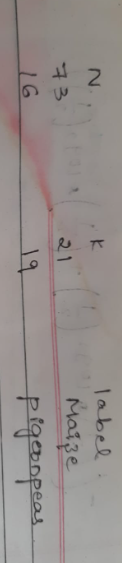 N K label
73 21 Maize
16 19 pigeonpeas